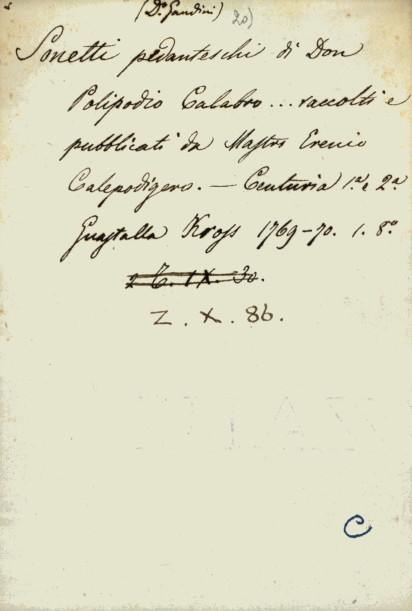 (D.º Gandini) 20)
Sonetti pedanteschi di Don
Polipodio Calabro... raccolti e
pubblicati da Mastro Erenio
Calepodigero. — Centuria 1.ª e 2.ª
Guastalla Kross 1769-70. 1. 8.º
Z. IX. 30.
Z. X. 86.
C